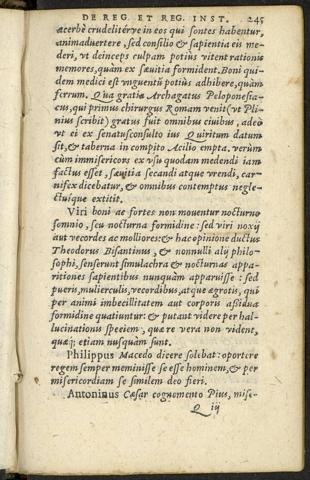 DE REG. ET REG. INST. 245
acerbè crudeliterve in eos qui sontes habentur,
animadvertere, sed consilio & sapientia eis me-
deri, vt deinceps culpam potiùs vitent rationis
memores, quàm ex sævitia formident. Boni qui-
dem medici est vnguentū potiùs adhibere, quàm
ferrum. Qua gratia Archagatus Peloponesia-
cus, qui primus chirurgus Romam venit (vt Pli-
nius scribit) gratus fuit omnibus civibus, adeò
vt ei ex senatusconsulto ius Quiritum datum
sit, & taberna in compito Acilio empta. verùm
cùm immisericors ex vsu quodam medendi iam
factus esset, sævitia secandi atque vrendi, car-
nifex dicebatur, & omnibus contemptus negle-
ctuique extitit.
Viri boni ac fortes non moventur nocturno
somnio, seu nocturna formidine: sed viri noxij
aut vecordes ac molliores: & hac opinione ductus
Theodorus Bisantinus, & nonnulli alij philo-
sophi, senserunt simulachra & nocturnas appa-
ritiones sapientibus nunquàm apparuisse: sed
pueris, mulierculis, vecordibus, atque ægrotis, qui
per animi imbecillitatem aut corporis aßidua
formidine quatiuntur: & putant videre per hal-
lucinationis speciem, quæ re vera non vident,
quæq; etiam nusquàm sunt.
Philippus Macedo dicere solebat: oportere
regem semper meminisse se esse hominem, & per
misericordiam se similem deo fieri.
Antoninus Cæsar cognomento Pius, mise-
Q iij